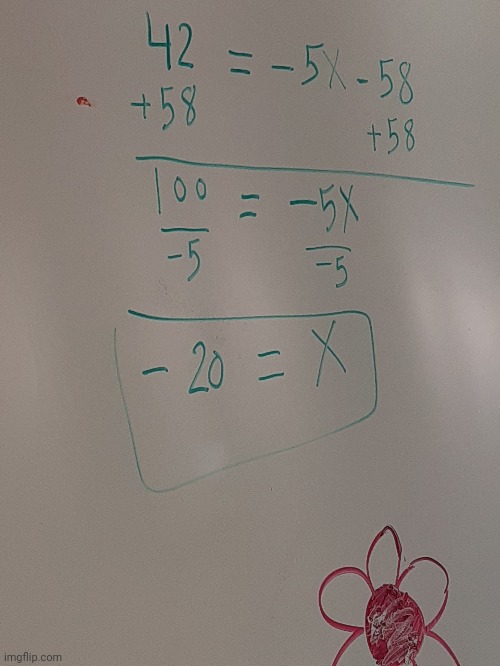 42 = -5x - 58
+58 +58
100 = -5x
-5 -5
-20 = x
imgflip.com